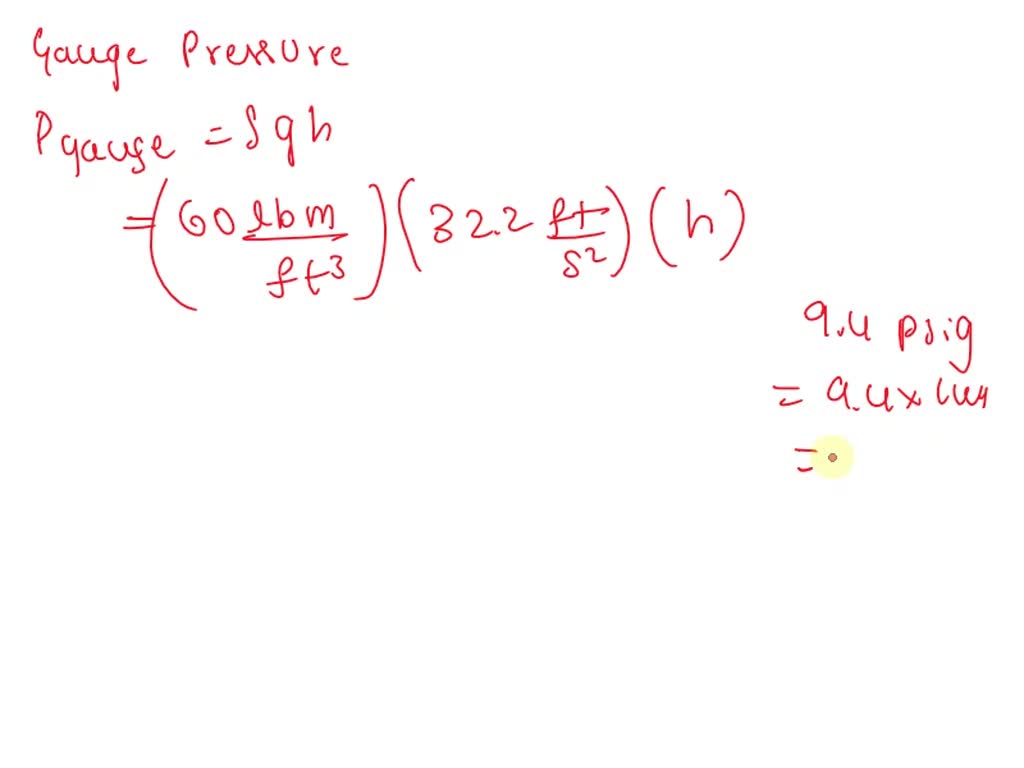 Gauge Pressure
Pgauge = ρgh
= (60 lbm/ft³) (32.2 ft/s²) (h)
9.4 psig
= 9.4 x 144
=